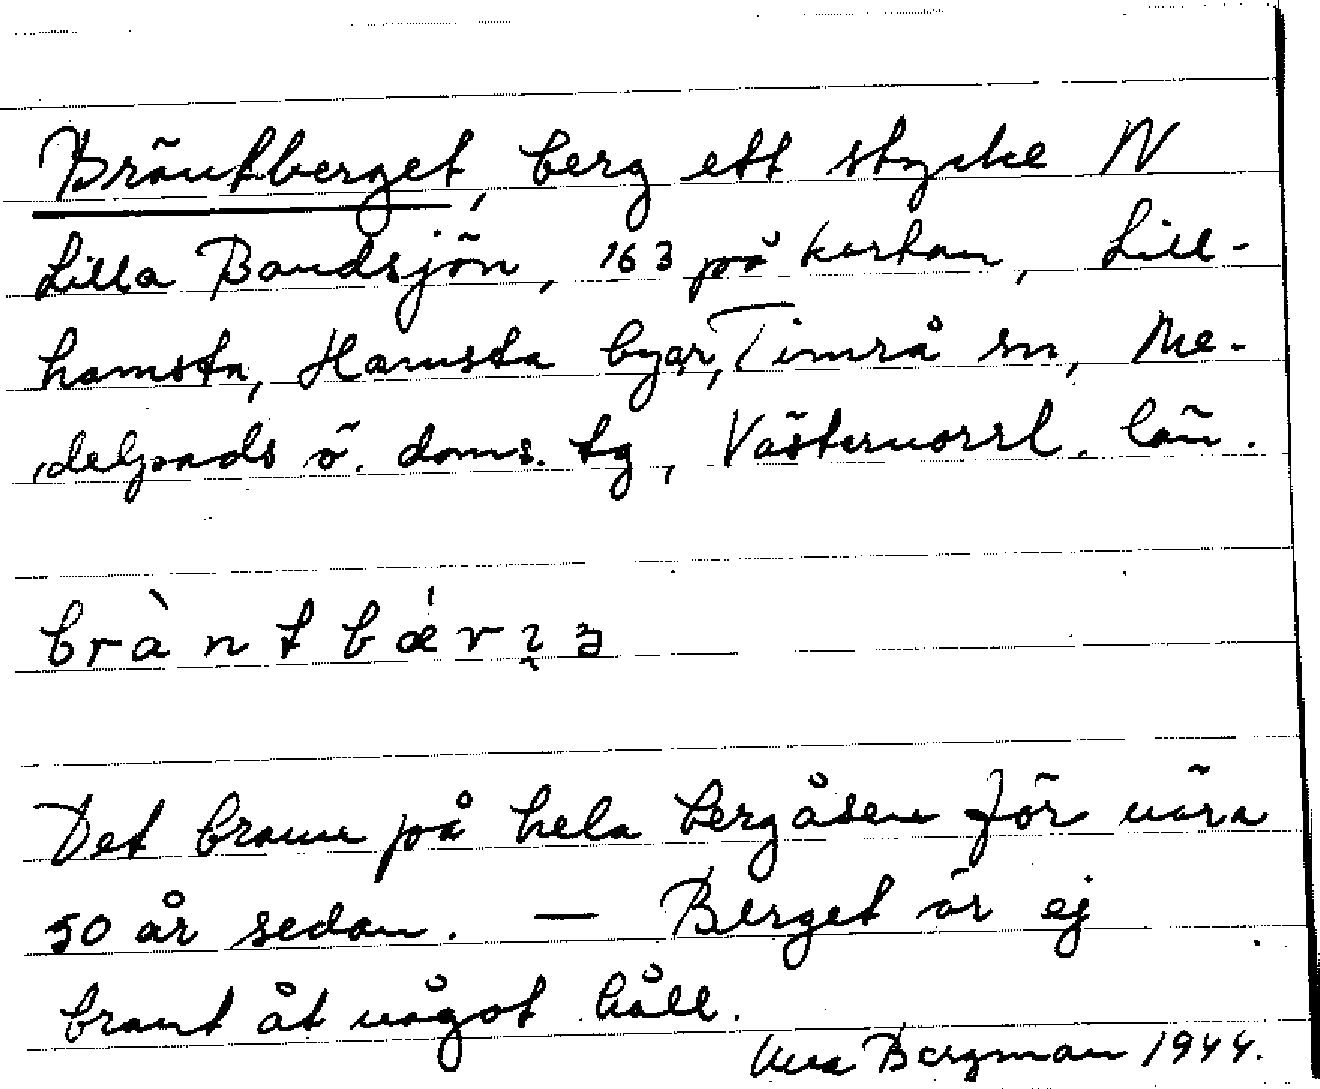 Bräntberget, berg ett stycke N
Lilla Bandsjön, 163 på kartan, Lill-
hamsta, Hamsta byar, Timrå sn, Me-
delpads ö. doms. tg, Västernorrl. län.
brà n t b ǽ r ʒ̨ ə
Det brann på hela bergåsen för nära
50 år sedan. — Berget är ej
brant åt något håll.
Vera Bergman 1944.